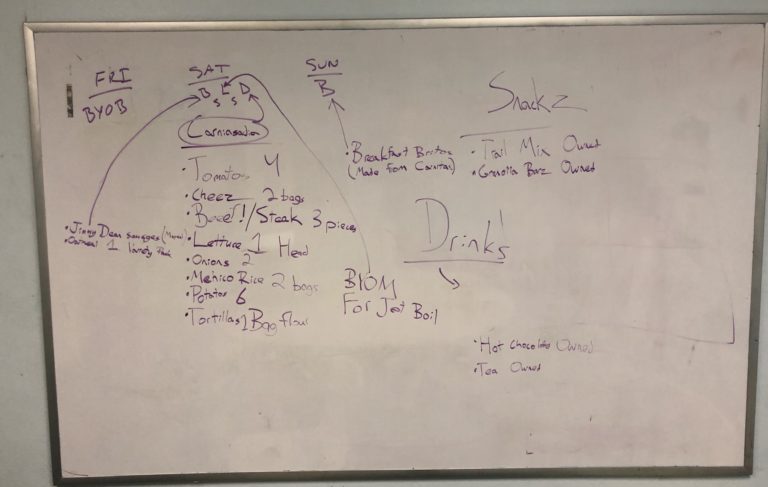 FRI
BYOB
SAT
B L D
S S
SUN
B
Snackz
• Trail Mix Owned
• Granolla Barz Owned
Carniasada
• Tomatos 4
• Cheez 2 bags
• Beef!/Steak 3 pieces
• Lettuce 1 Head
• Onions 2
• Mehico Rice 2 bags
• Potatos 6
• Tortillas 1 Bag flour
• Jimmy Dean
• Oatmeal 1 Pack
• Breakfast
(Made from Carnitas)
BYOM
For Jet Boil
Drinks
• Hot Chocolate Owned
• Tea Owned